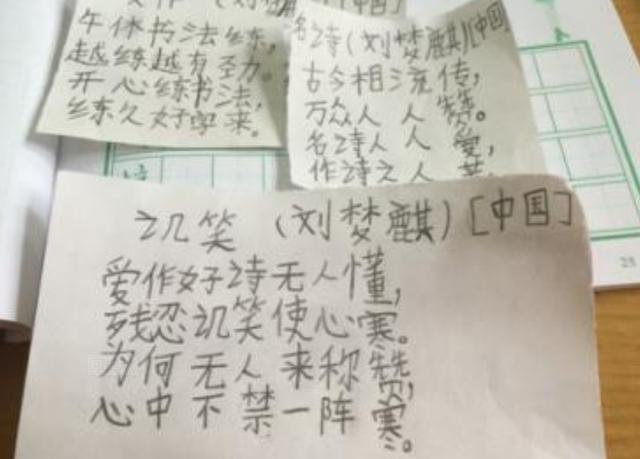 作（刘梦 [中国]
午休书法练，
越练越有劲。
开心练书法，
练久好字来。
名诗（刘梦麒）[中国
古今相流传，
万众人人赞。
名诗人人爱，
作诗之人
讥笑（刘梦麒）[中国]
爱作好诗无人懂，
残忍讥笑使心寒。
为何无人来称赞，
心中不禁一阵寒。
25